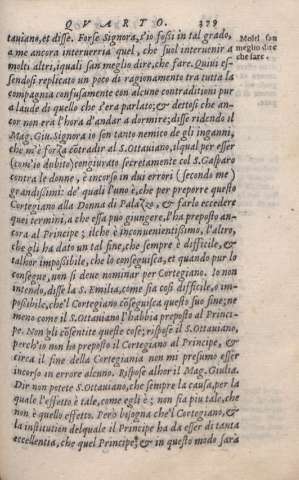 QVARTO. 329
tauiano, et disse. Forse Signora, s'io fossi in tal grado,
a me ancora interuerria quel, che suol interuenir a
molti altri, iquali san meglio dire, che fare. Quiui es-
sendosi replicato un poco di ragionamento tra tutta la
compagnia confusamente con alcune contraditioni pur
a laude di quello che s'era parlato; & dettosi che an-
cor non era l'hora d'andar a dormire; disse ridendo il
Mag. Giu. Signora io son tanto nemico de gli inganni,
che m'è forza cōtradir al S. Ottauiano, ilqual per esser
(com'io dubito) congiurato secretamente col S. Gasparo
contra le donne, è incorso in dui errori (secondo me)
grandissimi: de' quali l'uno è, che per preporre questo
Cortegiano alla Donna di Palazzo, & farlo eccedere
quei termini, a che essa può giungere, l'ha preposto an-
cora al Principe; ilche è inconuenientissimo, l'altro,
che gli ha dato un tal fine, che sempre è difficile, &
talhor impossibile, che lo conseguisca, et quando pur lo
consegue, non si deue nominar per Cortegiano. Io non
intendo, disse la S. Emilia, come sia così difficile, o im-
possibile, che'l Cortegiano cōseguisca questo suo fine; ne
meno come il S. Ottauiano l'habbia preposto al Princi-
pe. Non gli cōsentite queste cose; rispose il S. Ottauiano,
perch'io non ho preposto il Cortegiano al Principe, &
circa il fine della Cortegiania non mi presumo esser
incorso in errore alcuno. Rispose alhor il Mag. Giulia.
Dir non potete S. Ottauiano, che sempre la causa, per la
quale l'effetto è tale, come egli è; non sia piu tale, che
non è quello effetto. Però bisogna che'l Cortegiano, &
la institution delquale il Principe ha da esser di tanta
eccellentia, che quel Principe; & in questo modo sara
Molti san
meglio dire
che fare.